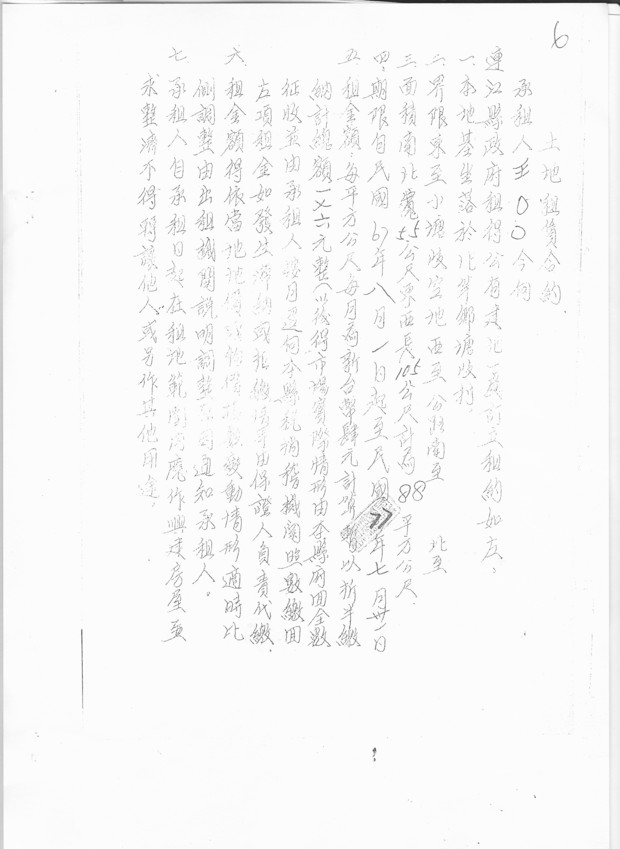 6
土地租賃合約
承租人王〇〇今向
連江縣政府租得公有 訂立租約如左。
一、本地基坐落於北竿鄉塘岐村
二、界限東至小塘岐空地西至公路南至 北至
三、面積南北寬55公尺東西長105公尺計為88平方公尺
四、期限自民國67年八月一日起至民國77年七月卅一日
五、租金額:每平方公尺每月為新台幣肆元計算暫以折半繳
納計總額一七六元整(以後得市場實際情形由本縣府回全數
征收並由承租人按月逕向本縣稅捐稽機關照數繳回
左項租金如發生滯納或拒繳情 由保證人負責代繳
六、租金額得依當地地價 變動情形適時比
例調整由出租機關說明調整 通知承租人。
七、承租人自承租日起在租地範圍內應作興建房屋並
求整潔不得轉讓他人或另作其他用途。